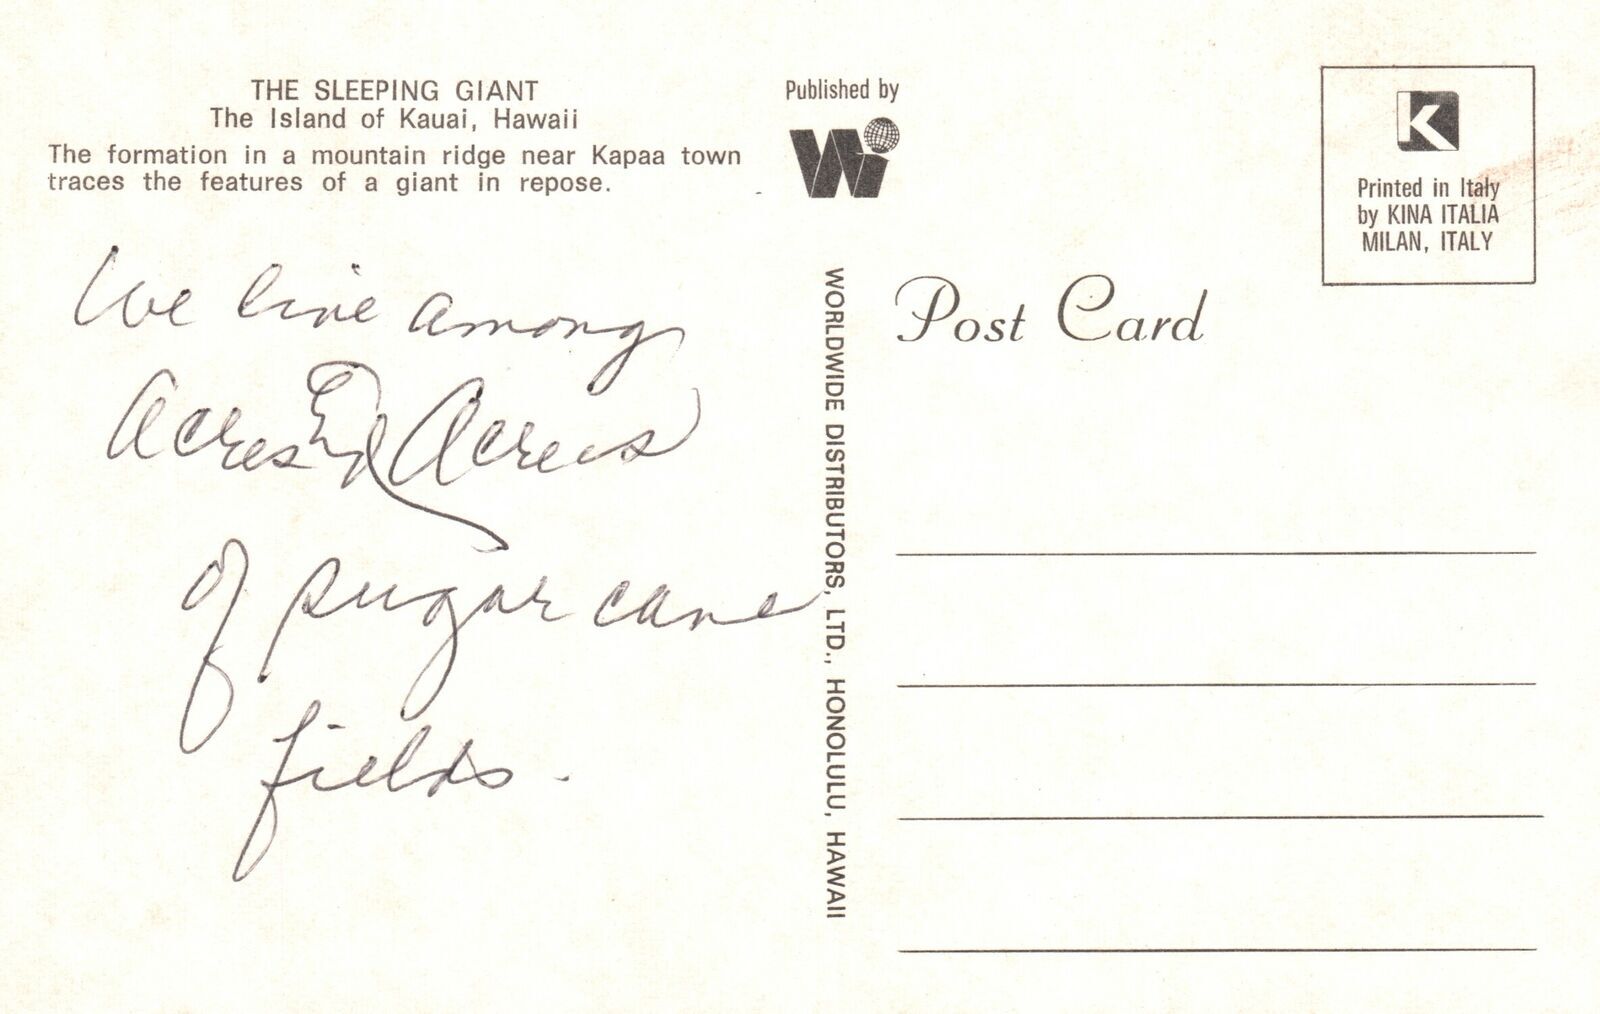 THE SLEEPING GIANT
The Island of Kauai, Hawaii
The formation in a mountain ridge near Kapaa town
traces the features of a giant in repose.
We live among
Acres & Acres
of sugar cane
fields.
Published by
W
WORLDWIDE DISTRIBUTORS, LTD., HONOLULU, HAWAII
Post Card
K
Printed in Italy
by KINA ITALIA
MILAN, ITALY